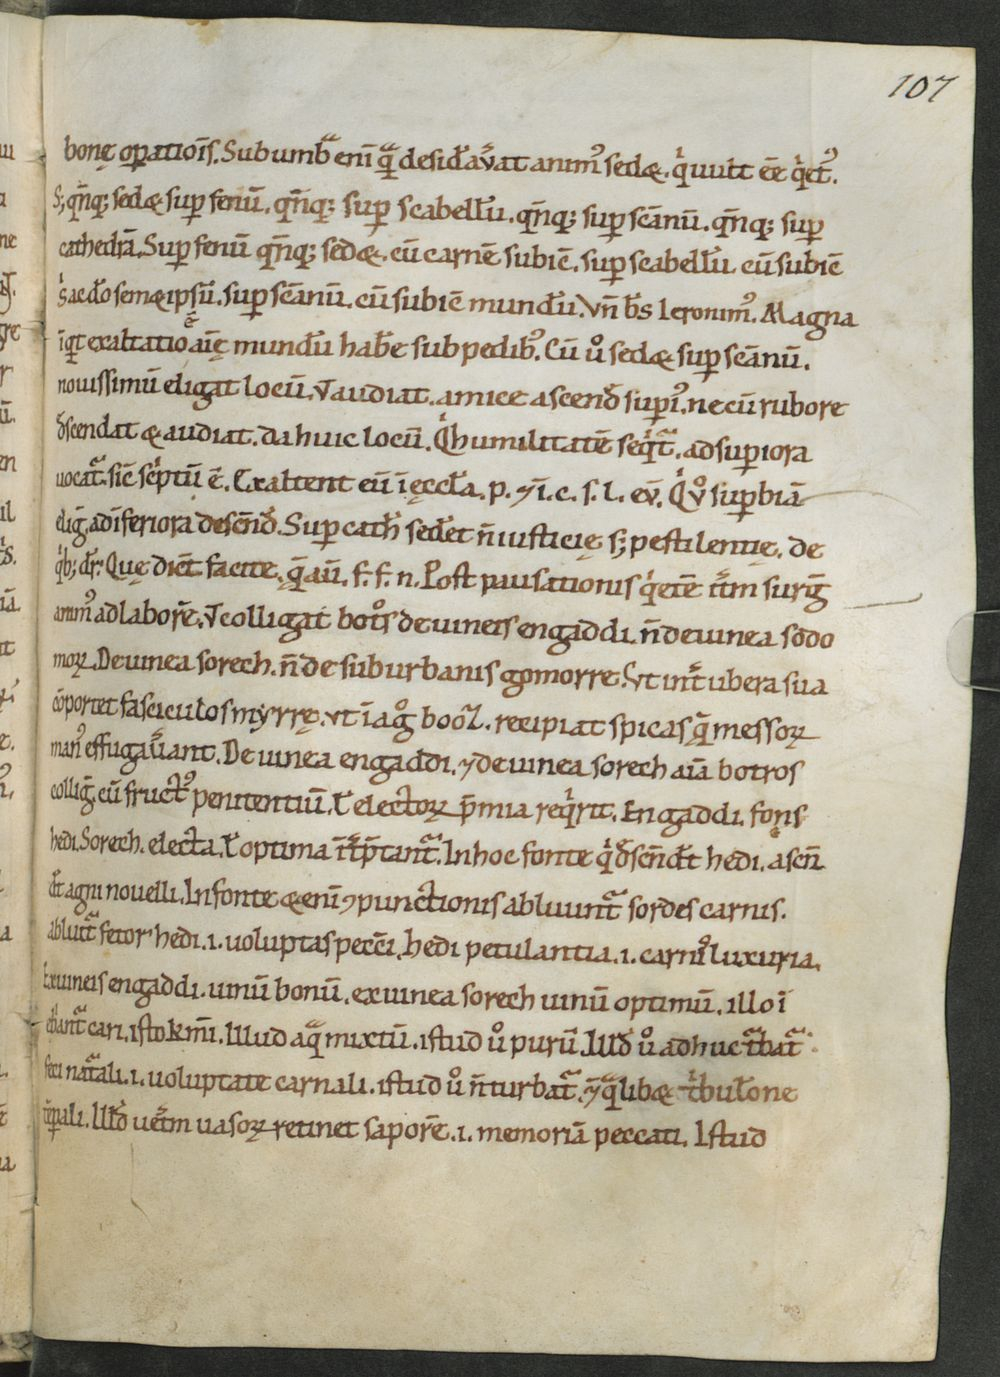 107
bonę oꝑatiōis. Sub umbᵃ eni̅ qᵃ̨ desid̓av̓at anim᷒ sed&. qⁱ vult e̅e̅ qⁱet᷒.
S; qn̅q; sed& suꝑ fenu̅. qn̅q; suꝑ scabellu̅. qn̅q; suꝑ sca̅nu̅. qn̅q; suꝑ
cathedra̅. Suꝑ fenu̅ qn̅q; sed&. cu̅ carne̅ subic̅. suꝑ scabellu̅ cu̅ subic̅
sⁱ ac d̓o sem&ipsu̅. suꝑ sca̅nu̅. cu̅ subic̅ mundu̅. Vn̅ b̅s Ieronim᷒. Magna
i̅qᵗ exaltatio e̅ ai̅ę mundu̅ hab̅e sub pedib᷒. Cu̅ v̊ sed& suꝑ sca̅nu̅.
nouissimu̅ eligat locu̅. Vt audiat. amice ascend̓ supi᷒. ne cu̅ rubore
d̓scendat & audiat. da huic locu̅. Qⁱ humilitate̅ seqⁱtᷣ. ad superiora
uocatᷣ. sic̅ scⁱptu̅ e̅. Exaltent eu̅ i̅ ęccl̓a. p. ⁊ i̅. c. s. l. eu̅. Qⁱ v̊ suꝑbia̅
elig̅. ad i̅feriora desce̅d̓. Suꝑ cath̓ sedet n̅ iusticię s; pestilentię. de
qⁱb; dr̅. Quę dic̅t facite. q̨̅ au̅. f. f. n. Post pausationis qⁱete̅ it̅m surg̅
anim᷒ ad labore̅. Vt colligat bot̊s de uineis engaddi. n̅ de uinea sodo
moꝝ. De uinea sorech. n̅ de suburbanis gomorre. Vt int̓ ubera sua
co̅portet fasciculos myrrę. vt i̅ ag̊ booz. recipiat spicas q̨̅ messoꝝ
man᷒ effugav̓ant. De uinea engaddi. ⁊ de uinea sorech ai̅a botros
collig̅. cu̅ fruct᷒ penitentiu̅. ł electoꝝ p̅mia reqⁱrit. Engaddi. fons
hedi. Sorech. electa. ł optima int̓p̅tantᷣ. In hoc fonte qⁱ d̓scen̅dt̅ hedi. ascen̅
dt̅ agni nouelli. In fonte &eni̅ ꝯpunctionis abluuntᷣ sordes carnis.
abluitᷣ fetor hedi. .i. uoluptas pecc̅i. hedi petulantia .i. carnis luxuria.
Ex uineis engaddi. uinu̅ bonu̅. ex uinea sorech uinu̅ optimu̅. illo i̅
ebⁱantᷣ cari. isto kmi̅. Illud aqᵃ mixtu̅. istud v̊ puru̅. Illd̓ v̊ adhuc tᷣbatᷣ
feci natᷣali .i. uoluptate carnali. istud v̊ n̅ turbatᷣ. ⁊ qᵃlib& tⁱbul̓one
te̅ꝑali. Illd̓ vet̓m uasoꝝ retinet sapore̅ .i. memoria̅ peccati. Istud